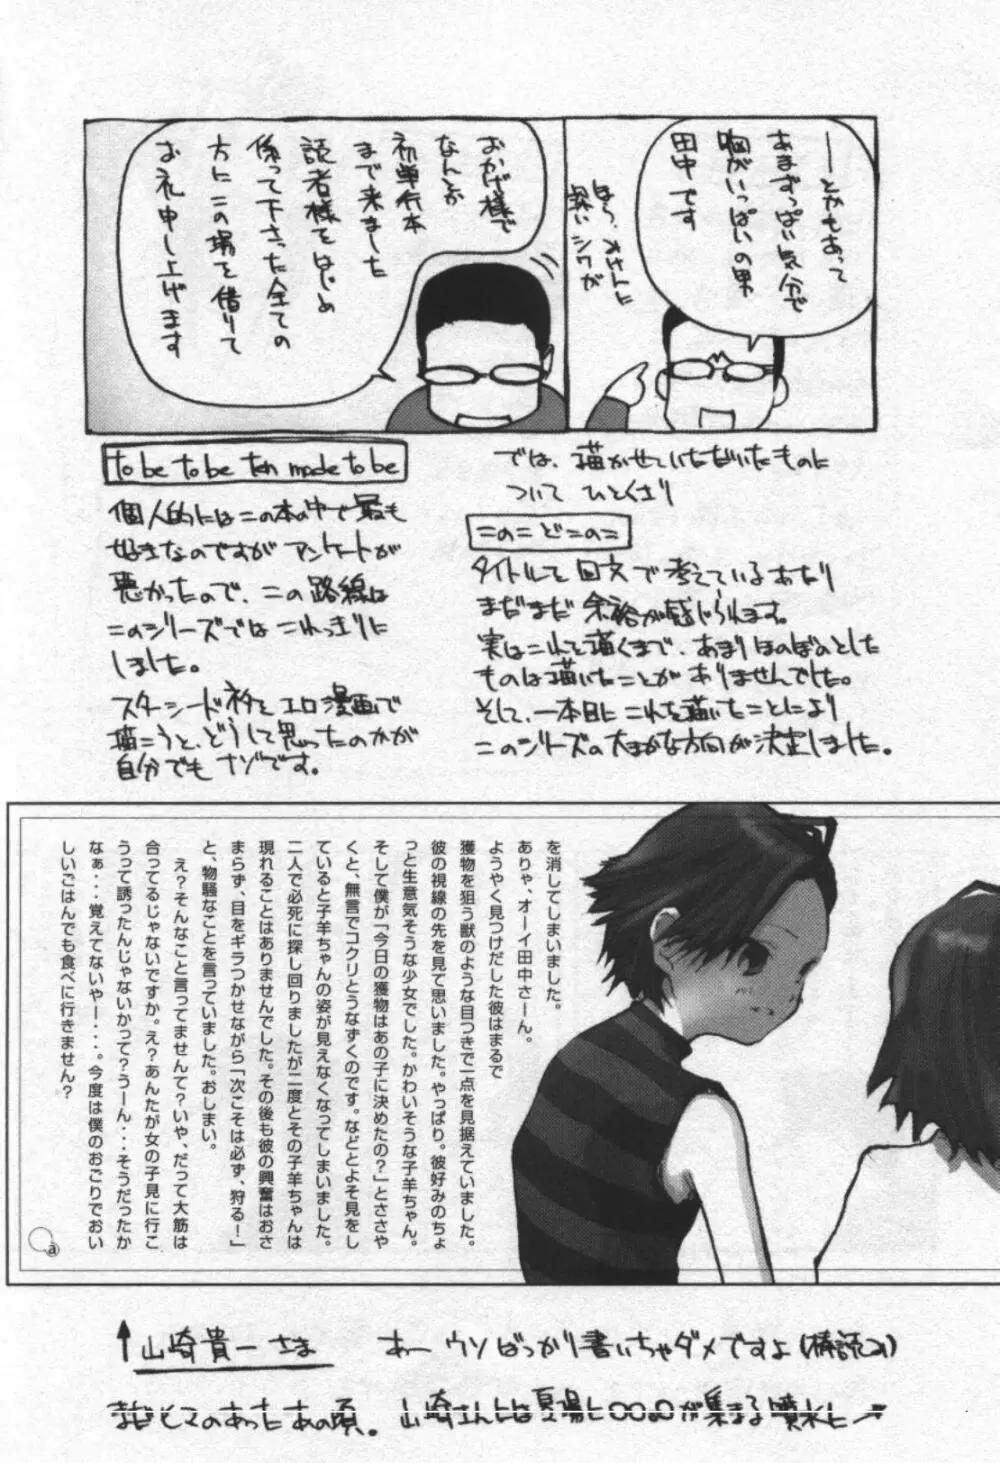 ―とかもあって
あまずっぱい気分で
胸がいっぱいの男
田中です
ほら、オデコに
深いシワが
おかげ様で
なんとか
初単行本
まで来ました
読者様をはじめ
係って下さった全ての
方にこの場を借りて
お礼申し上げます
では、描かせていただいたものに
ついて ひとくさり
このこ どこのこ
タイトルを回文で考えているあたり
まだまだ余裕が感じられます。
実はこれを描くまで、あまりほのぼのとした
ものは描いたことがありませんでした。
そして、一本目にこれを描いたことにより
このシリーズの大まかな方向が決定しました。
to be to be ten made to be
個人的にはこの本の中で最も
好きなのですがアンケートが
悪かったので、この路線は
このシリーズではこれっきりに
しました。
スターシードネタをエロ漫画で
描こうと、どうして思ったのかが
自分でもナゾです。
を消してしまいました。
ありゃ、オーイ田中さーん。
ようやく見つけだした彼はまるで
獲物を狙う獣のような目つきで一点を見据えていました。
彼の視線の先を見て思いました。やっぱり。彼好みのちょ
っと生意気そうな少女でした。かわいそうな子羊ちゃん。
そして僕が「今日の獲物はあの子に決めたの？」とささや
くと、無言でコクリとうなずくのです。などとよそ見をし
ていると子羊ちゃんの姿が見えなくなってしまいました。
二人で必死に探し回りましたが二度とその子羊ちゃんは
現れることはありませんでした。その後も彼の興奮はおさ
まらず、目をギラつかせながら「次こそは必ず、狩る！」
と、物騒なことを言っていました。おしまい。
え？そんなこと言ってませんて？いや、だって大筋は
合ってるじゃないですか。え？あんたが女の子見に行こ
うって誘ったんじゃないかって？うーん・・・そうだったか
なぁ・・・覚えてないやー・・・・。今度は僕のおごりでおい
しいごはんでも食べに行きません？
↑山崎貴一さま あー ウソばっかり書いちゃダメですよ
ヒマのあったあの頃。山崎さんとは夏場に〇〇。〇が集まる噴水に